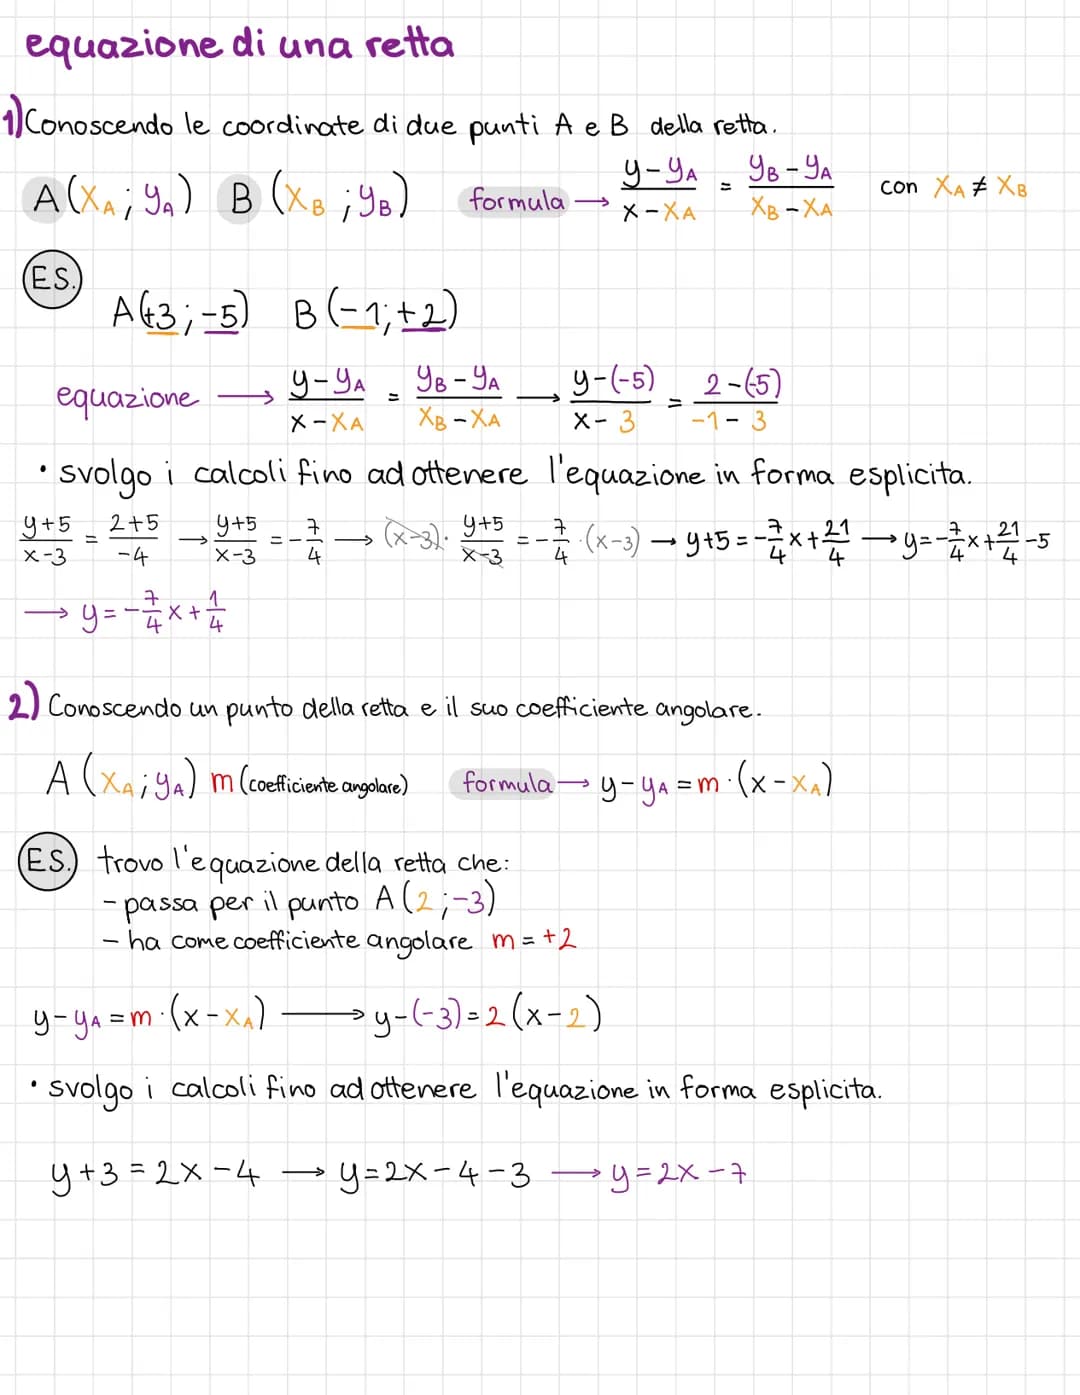 equazione di una retta
1) Conoscendo le coordinate di due punti A e B della retta.
A(xA; yA) B(xB; yB) formula → (y-yA)/(x-xA) = (yB-yA)/(xB-xA) con xA ≠ xB
ES.
A(+3;-5) B(-1;+2)
equazione → (y-yA)/(x-xA) = (yB-yA)/(xB-xA) → (y-(-5))/(x-3) = (2-(-5))/(-1-3)
• svolgo i calcoli fino ad ottenere l'equazione in forma esplicita.
(y+5)/(x-3) = (2+5)/(-4) → (y+5)/(x-3) = -7/4 → (x-3)·(y+5)/(x-3) = -7/4·(x-3) → y+5=-7/4x+21/4 → y=-7/4x+21/4-5
→ y=-7/4x+1/4
2) Conoscendo un punto della retta e il suo coefficiente angolare.
A(xA; yA) m (coefficiente angolare) formula → y-yA=m·(x-xA)
ES. trovo l'equazione della retta che:
- passa per il punto A(2;-3)
- ha come coefficiente angolare m=+2
y-yA=m·(x-xA) → y-(-3)=2(x-2)
• svolgo i calcoli fino ad ottenere l'equazione in forma esplicita.
y+3=2x-4 → y=2x-4-3 → y=2x-7